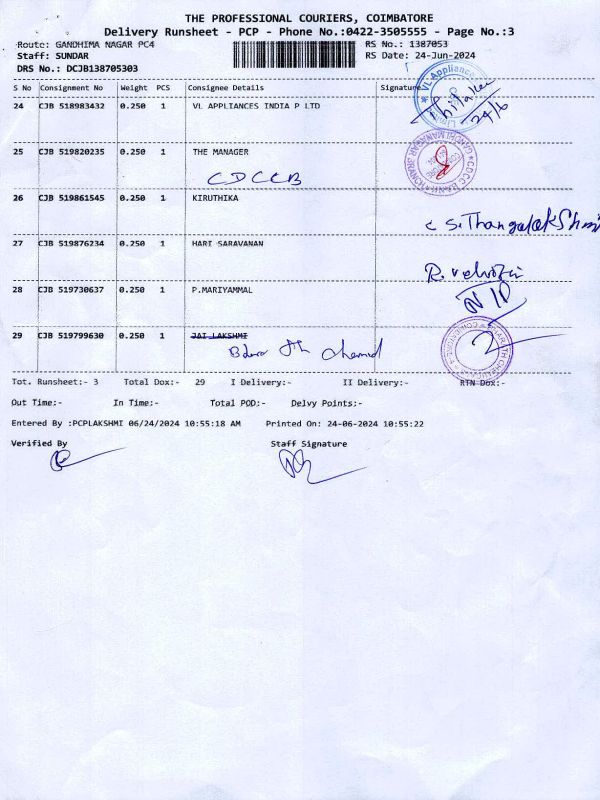 THE PROFESSIONAL COURIERS, COIMBATORE
Delivery Runsheet - PCP - Phone No.:0422-3505555 - Page No.:3
Route: GANDHIMA NAGAR PC4 RS No.: 1387053
Staff: SUNDAR RS Date: 24-Jun-2024
DRS No.: DCJB138705303
S No Consignment No Weight PCS Consignee Details Signature
24 CJB 518983432 0.250 1 VL APPLIANCES INDIA P LTD
VL Appliances
24/6
25 CJB 519820235 0.250 1 THE MANAGER
CDCCB
26 CJB 519861545 0.250 1 KIRUTHIKA
S. Thangalakshmi
27 CJB 519876234 0.250 1 HARI SARAVANAN
28 CJB 519730637 0.250 1 P.MARIYAMMAL
29 CJB 519799630 0.250 1 JAI LAKSHMI
Tot. Runsheet:- 3 Total Dox:- 29 I Delivery:- II Delivery:- RTN Dox:-
Out Time:- In Time:- Total POD:- Delvy Points:-
Entered By :PCPLAKSHMI 06/24/2024 10:55:18 AM Printed On: 24-06-2024 10:55:22
Verified By Staff Signature